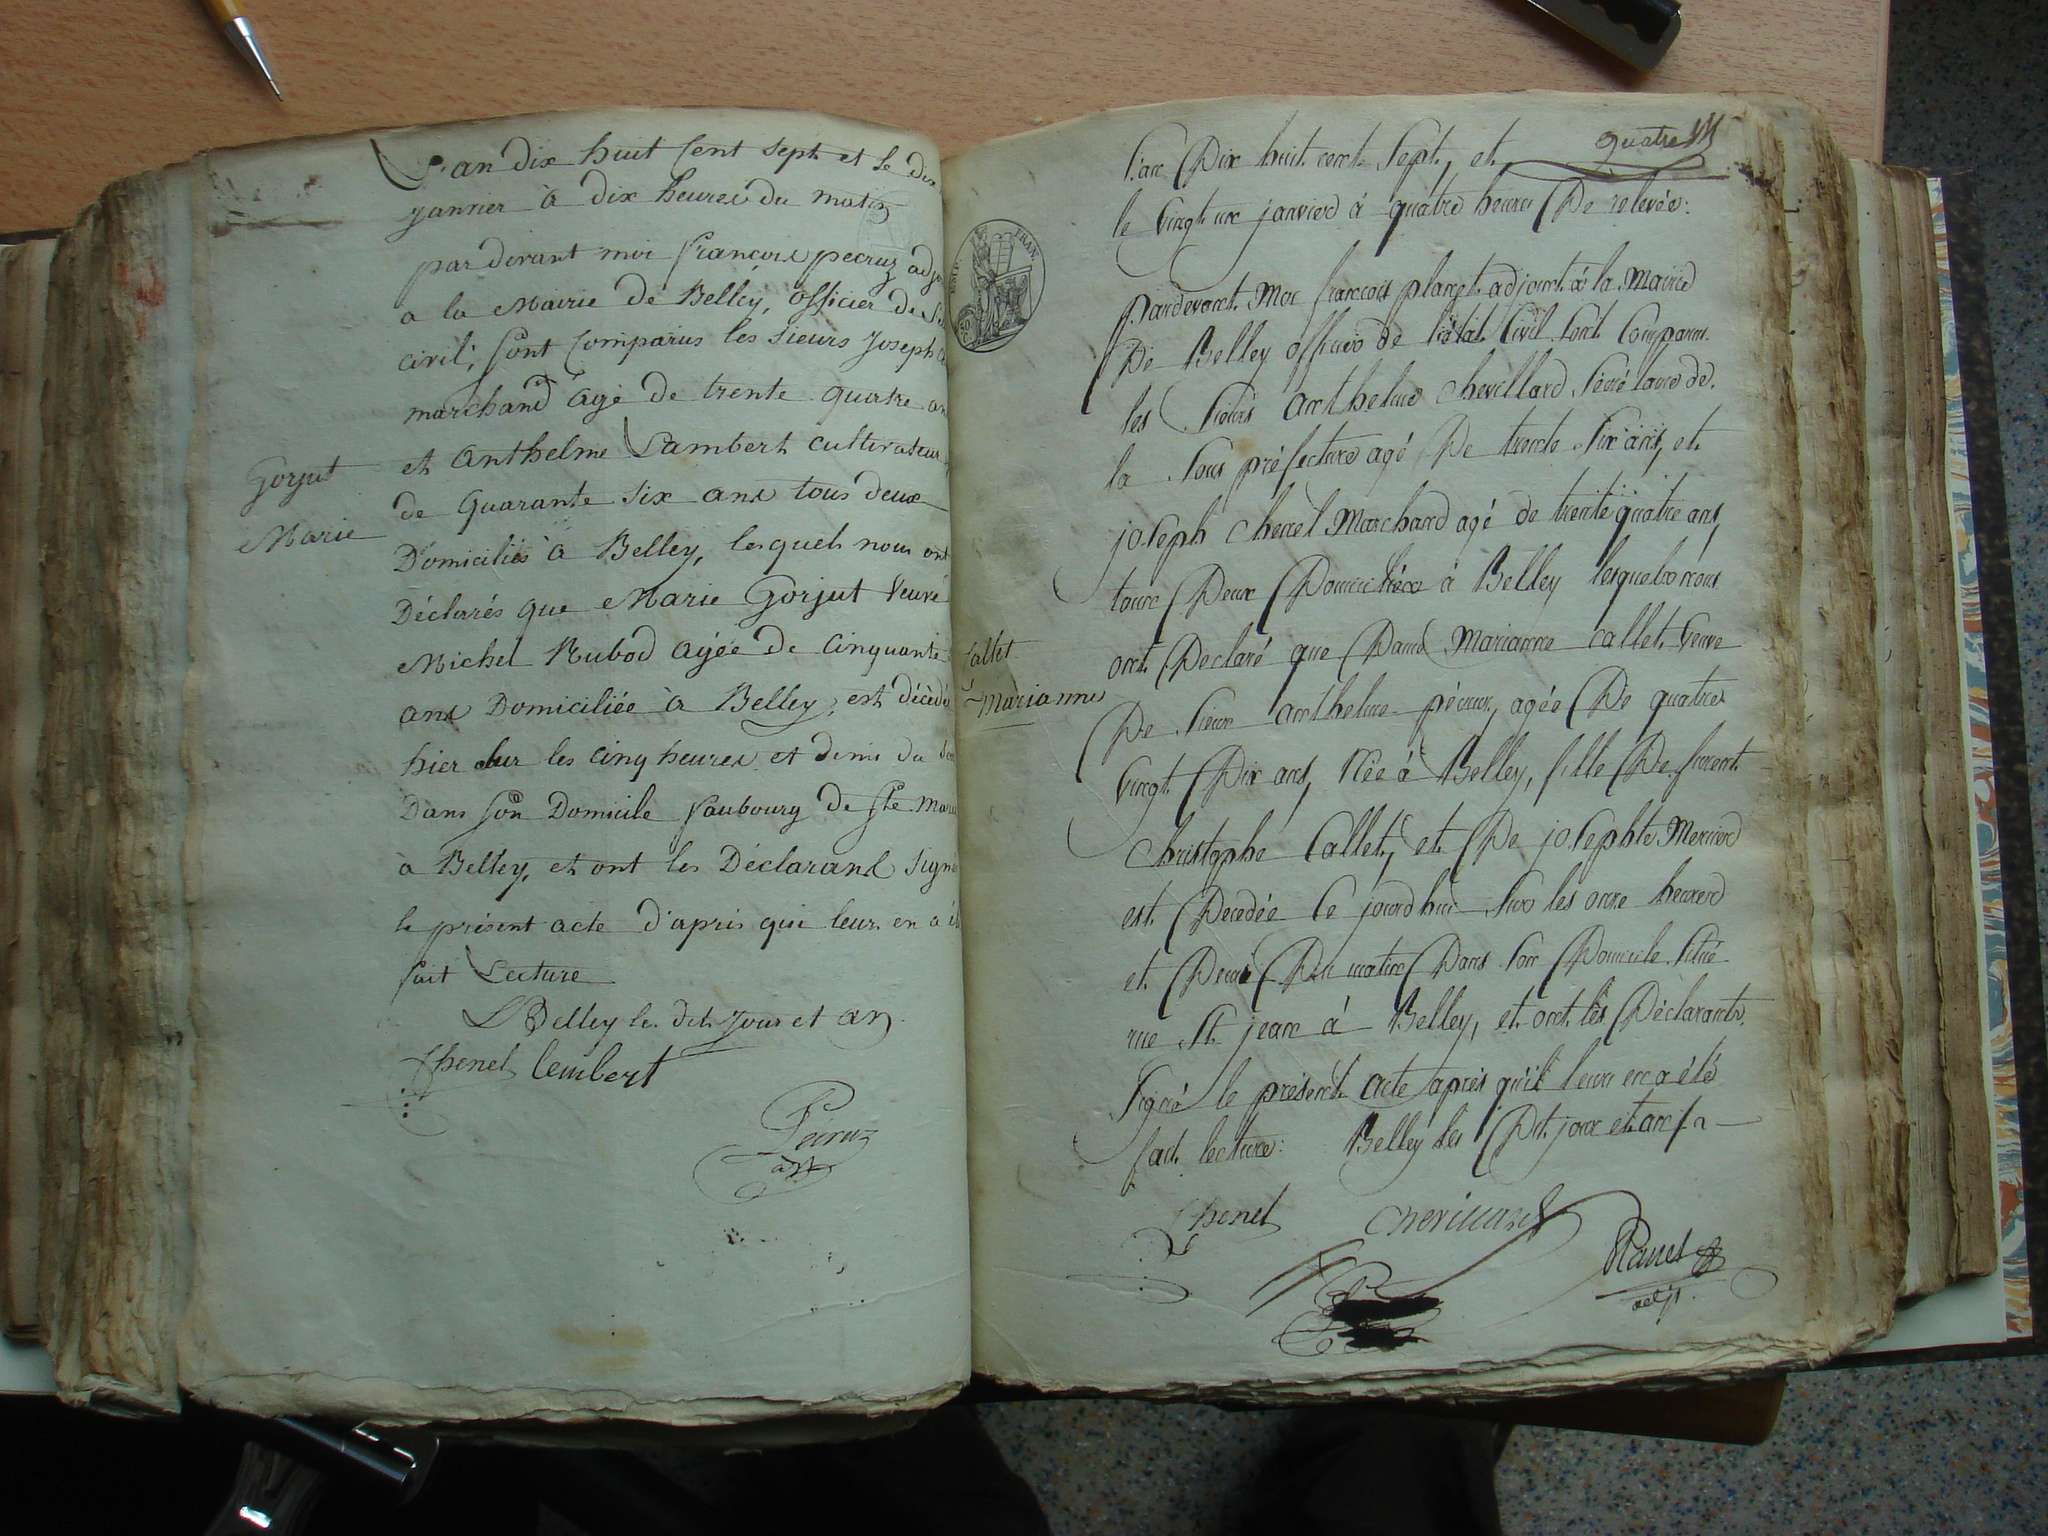 L'an dix huit Cent Sept et le dix
janvier à dix heures du matin
par devant moi françois pecruz adj
a la Mairie de Belley, officier de
civil, sont Comparus les sieurs Joseph
marchand agé de trente quatre an
et Anthelme Lambert cultivateur
de Quarante six ans tous deux
Domiciliés à Belley, lesquels nous ont
Déclarés que Marie Gorjut Veuve
Michel Rubod agée de Cinquante
ans Domiciliée à Belley, est décédé
hier sur les cinq heures et demi du
Dans son Domicile faubourg de Ste Marie
à Belley, et ont les Déclarans Signé
le présent acte d'apris qui leur en a é
fait Lecture
Belley les dit jour et an
Chenel lembert
Pecruz
adj
Gorjut
Marie
quatre
L'an Dix huit cent Sept, et
le Vingt un janvier à quatre heures De relevée.
Pardevant Moi françois planet adjoint à la Mairie
De Belley officier de l'état Civil sont Comparus
les Sieurs anthelme Chevillard Secrétaire de
la Sous préfecture agé De trente Six ans, et
joseph Chenel Marchand agé de trente quatre ans,
tous Deux Domiciliés à Belley lesquels nous
ont Declaré que Dame Marianne Callet Veuve
De Sieur anthelme pécruz, agée De quatre
Vingt Dix ans, Née à Belley, fille De florent
Christophe Callet, et De josephte Mercier
est Decedée Ce jourdhui Sur les onze heures
et Demi Du matin Dans son Domicile Situé
rue St jean à Belley, et ont les Déclarants
Signé le présent acte après qu'il leur en a été
fait lecture. Belley les Dit jour et an
Chenel Chevillard
Planet
adjt
Callet
Marianne
EMP. FRAN.